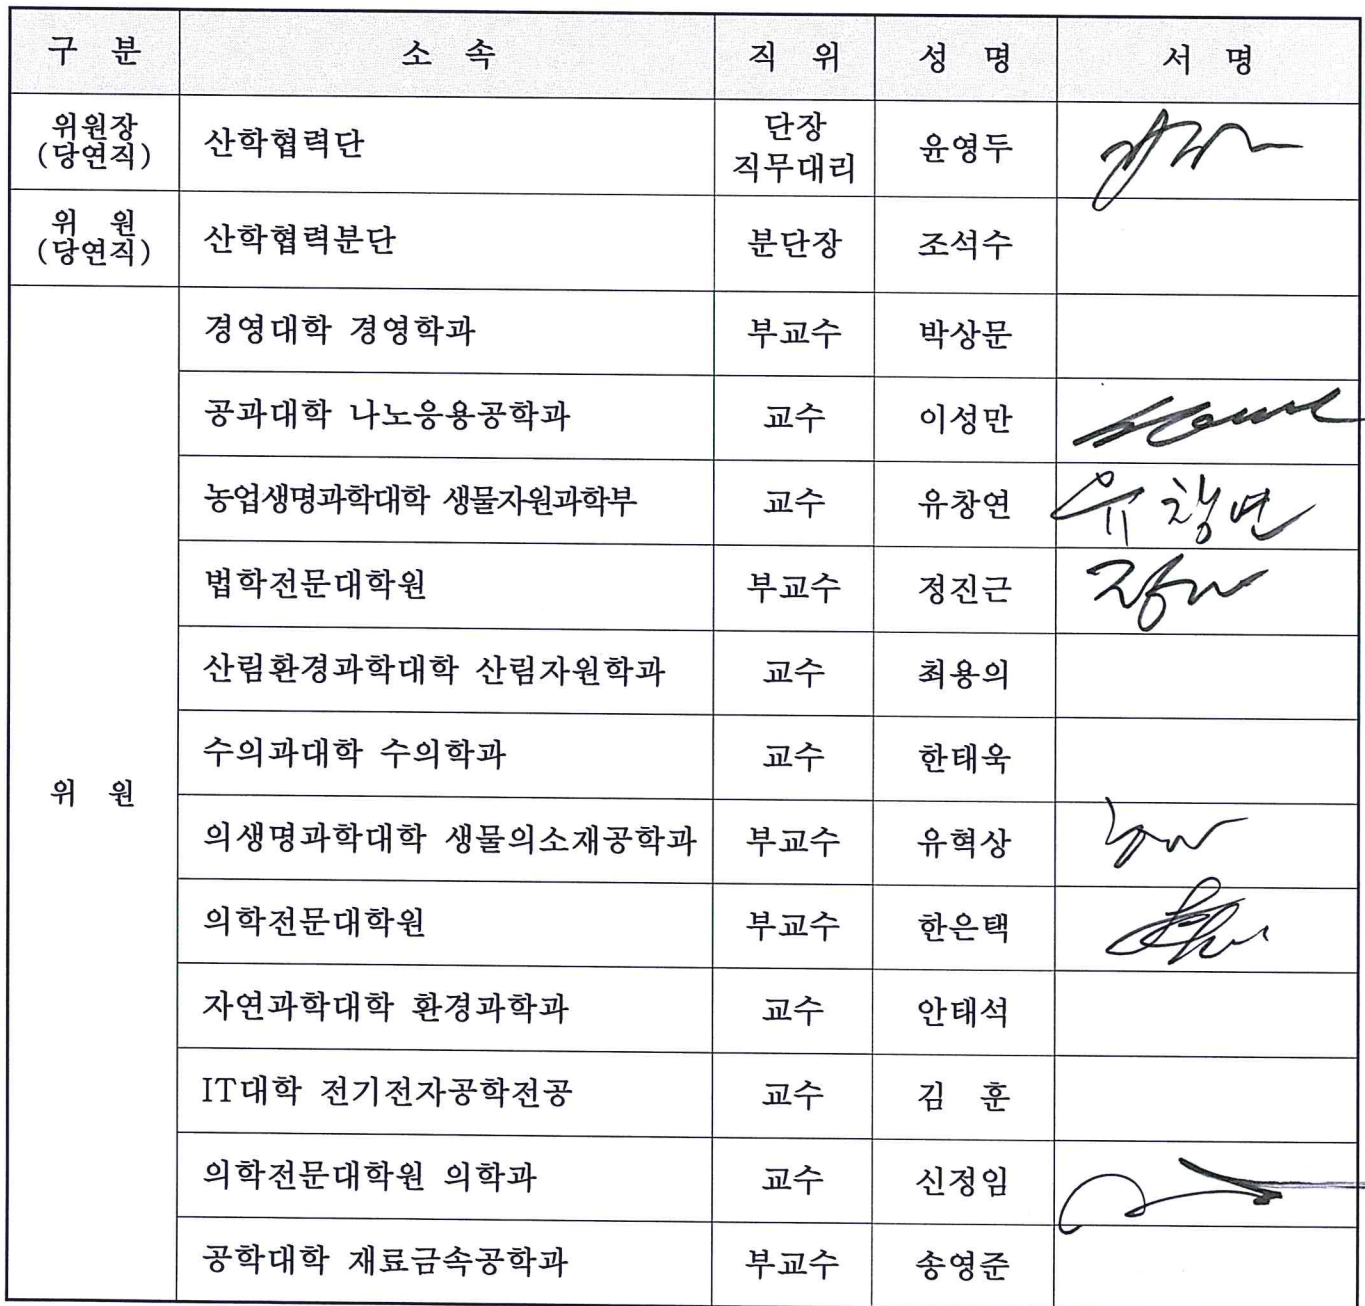 구 분 소 속 직 위 성 명 서 명
위원장
(당연직) 산학협력단 단장
직무대리 윤영두
위 원
(당연직) 산학협력분단 분단장 조석수
경영대학 경영학과 부교수 박상문
공과대학 나노응용공학과 교수 이성만
농업생명과학대학 생물자원과학부 교수 유창연 유창연
법학전문대학원 부교수 정진근
산림환경과학대학 산림자원학과 교수 최용의
수의과대학 수의학과 교수 한태욱
위 원
의생명과학대학 생물의소재공학과 부교수 유혁상
의학전문대학원 부교수 한은택
자연과학대학 환경과학과 교수 안태석
IT대학 전기전자공학전공 교수 김 훈
의학전문대학원 의학과 교수 신정임
공학대학 재료금속공학과 부교수 송영준